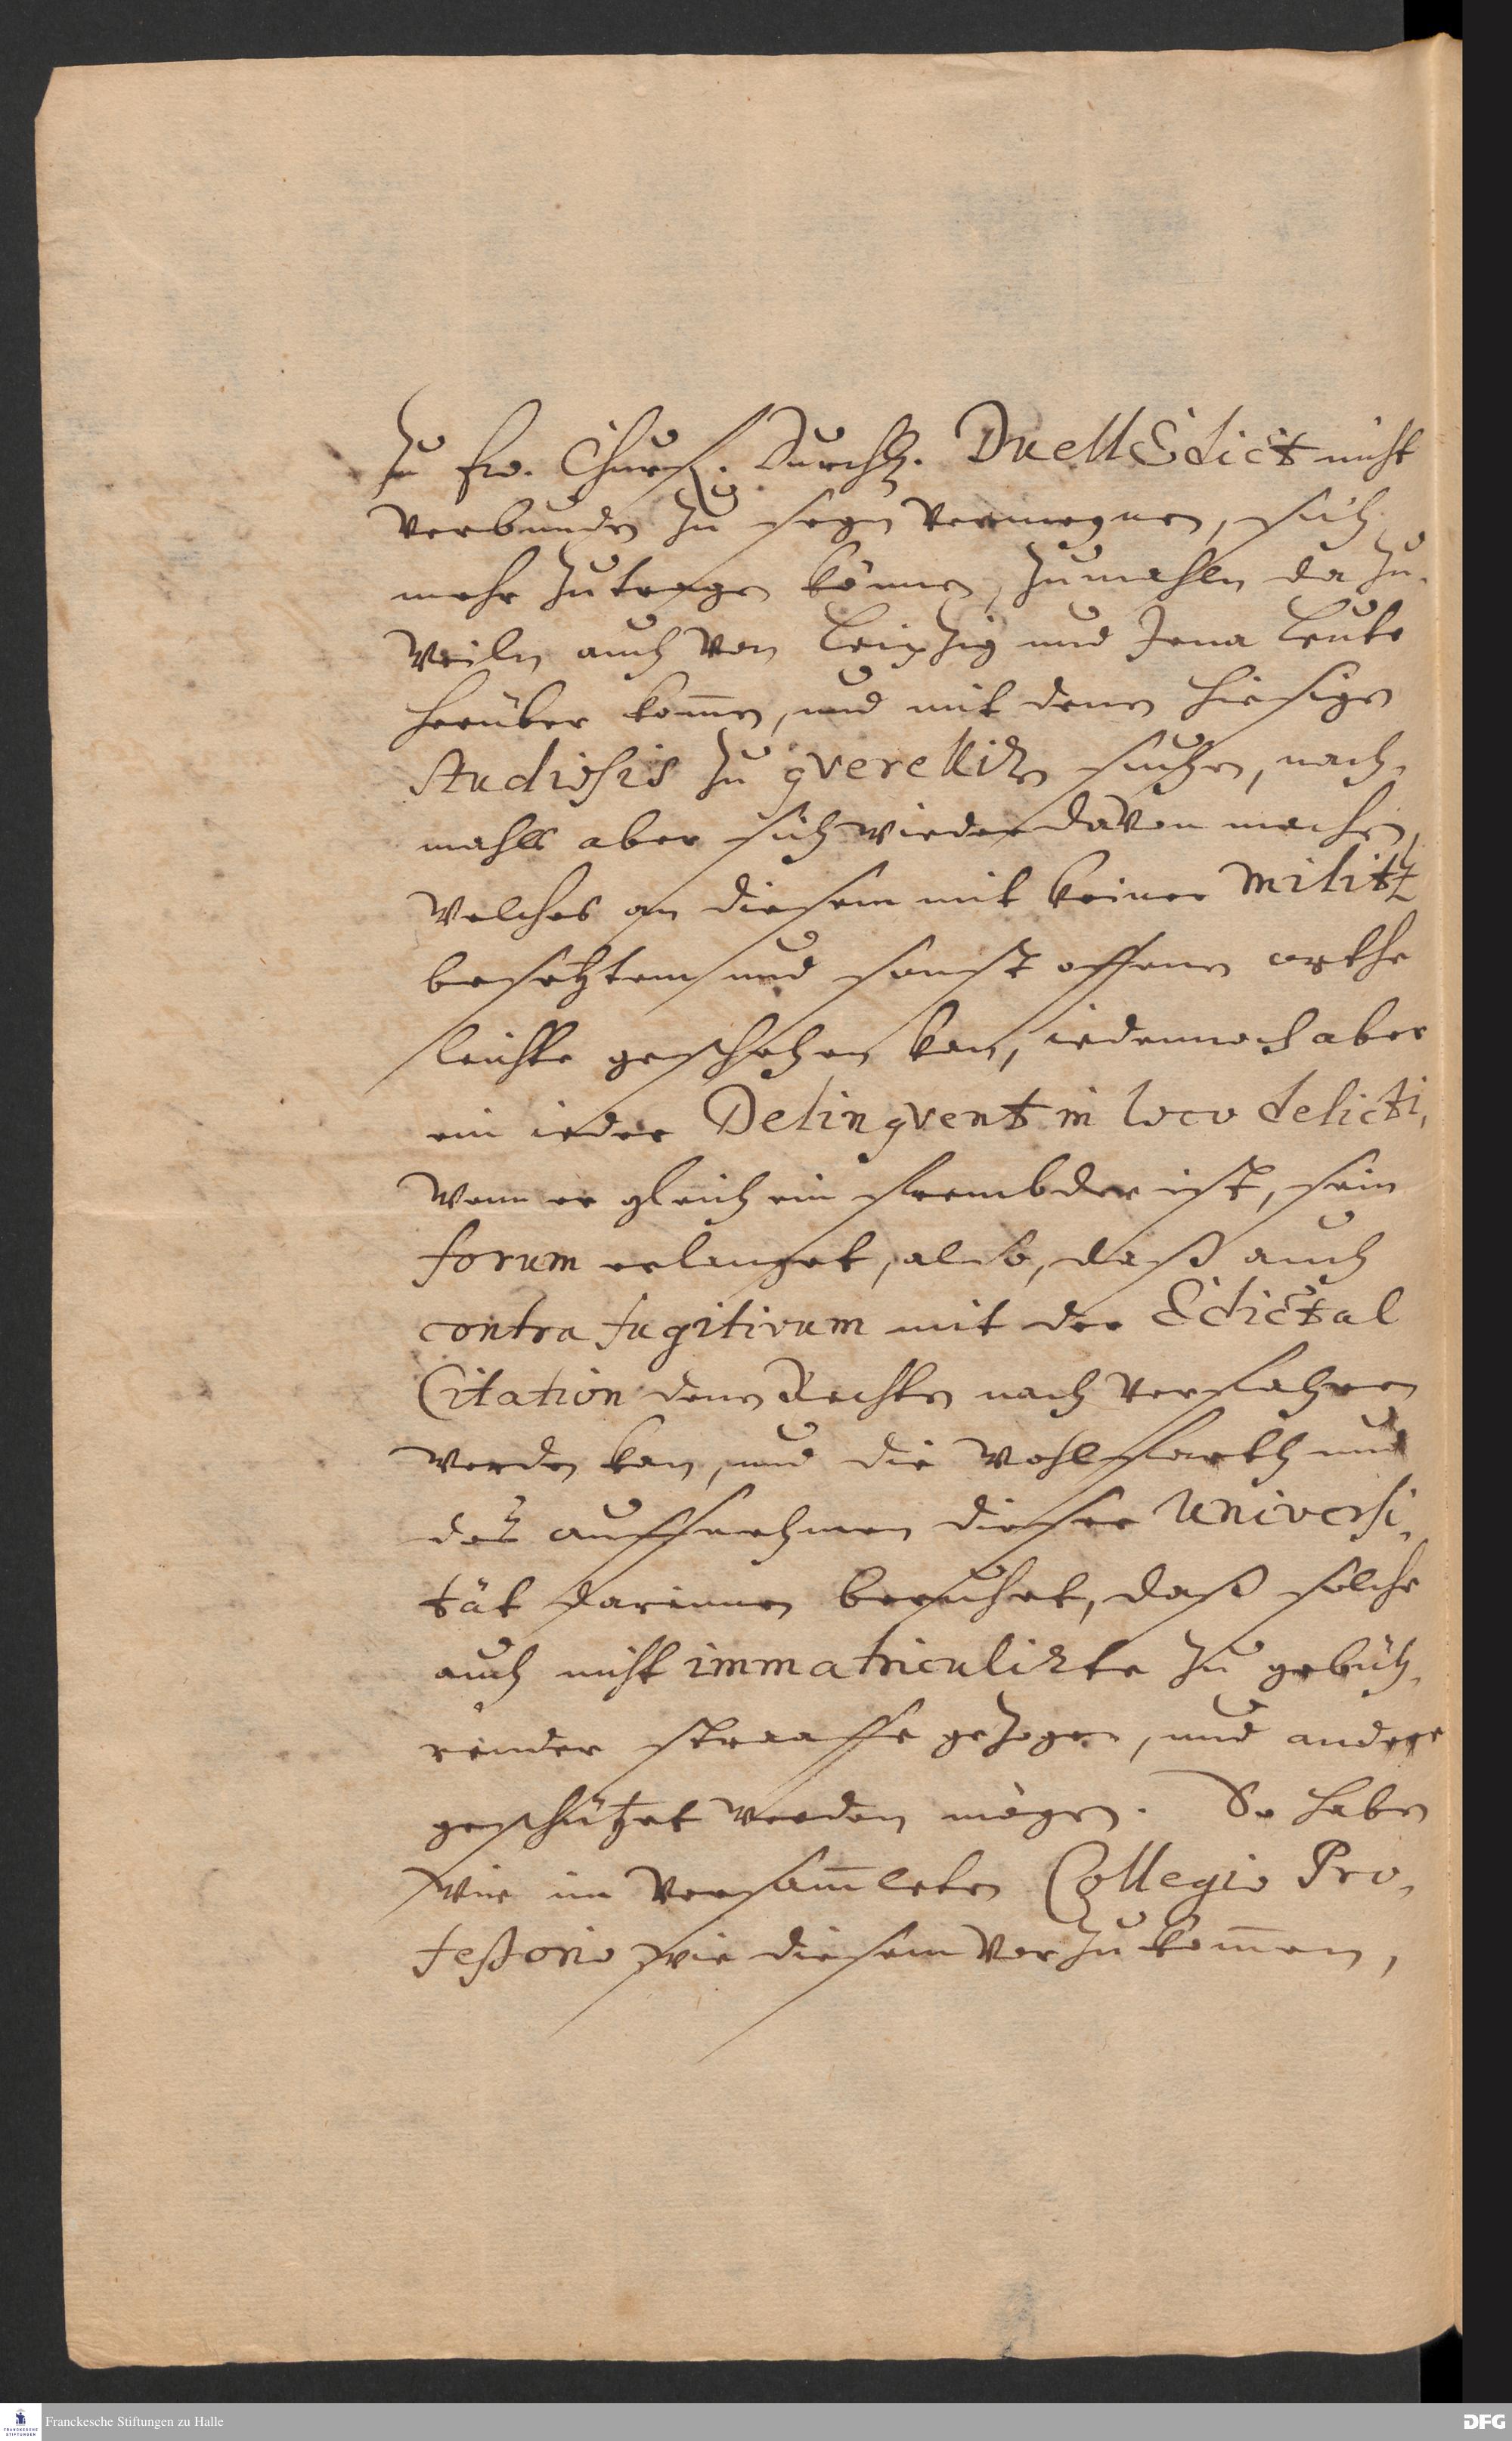 zu Ew. Churf. Durchl. Duell Edict nicht
verbunden zu seyn vermeynen, sich
mehr zutragen können, zumahln da zu-
weiln auch von Leipzig und Jena Leute
herüber kom̅en, und mit denen hiesigen
Studiosis zu qverelliren suchen, nach-
mahls aber sich wieder davon machen,
welches an diesem mit keiner Militz
besetztem und sonst offenen orthe
leichte geschehen kan, iedennoch aber
ein ieder Delinqvent in loco delicti,
wenn er gleich ein frembder ist, sein
forum erlanget, also, daß auch
contra fugitivum mit der Edictal
Citation denen Rechten nach verfahren
werden kan, und die Wohlfarth und
das auffnehmen dieser Universi-
tät darinnen beruhet, daß solche
auch nicht immatriculirte zu gebüh-
render straaffe gezogen, und andere
geschützet werden mögen. So haben
wir im versam̅leten Collegio Pro-
feßorio wie diesem vorzukom̅en,
Franckesche Stiftungen zu Halle
DFG